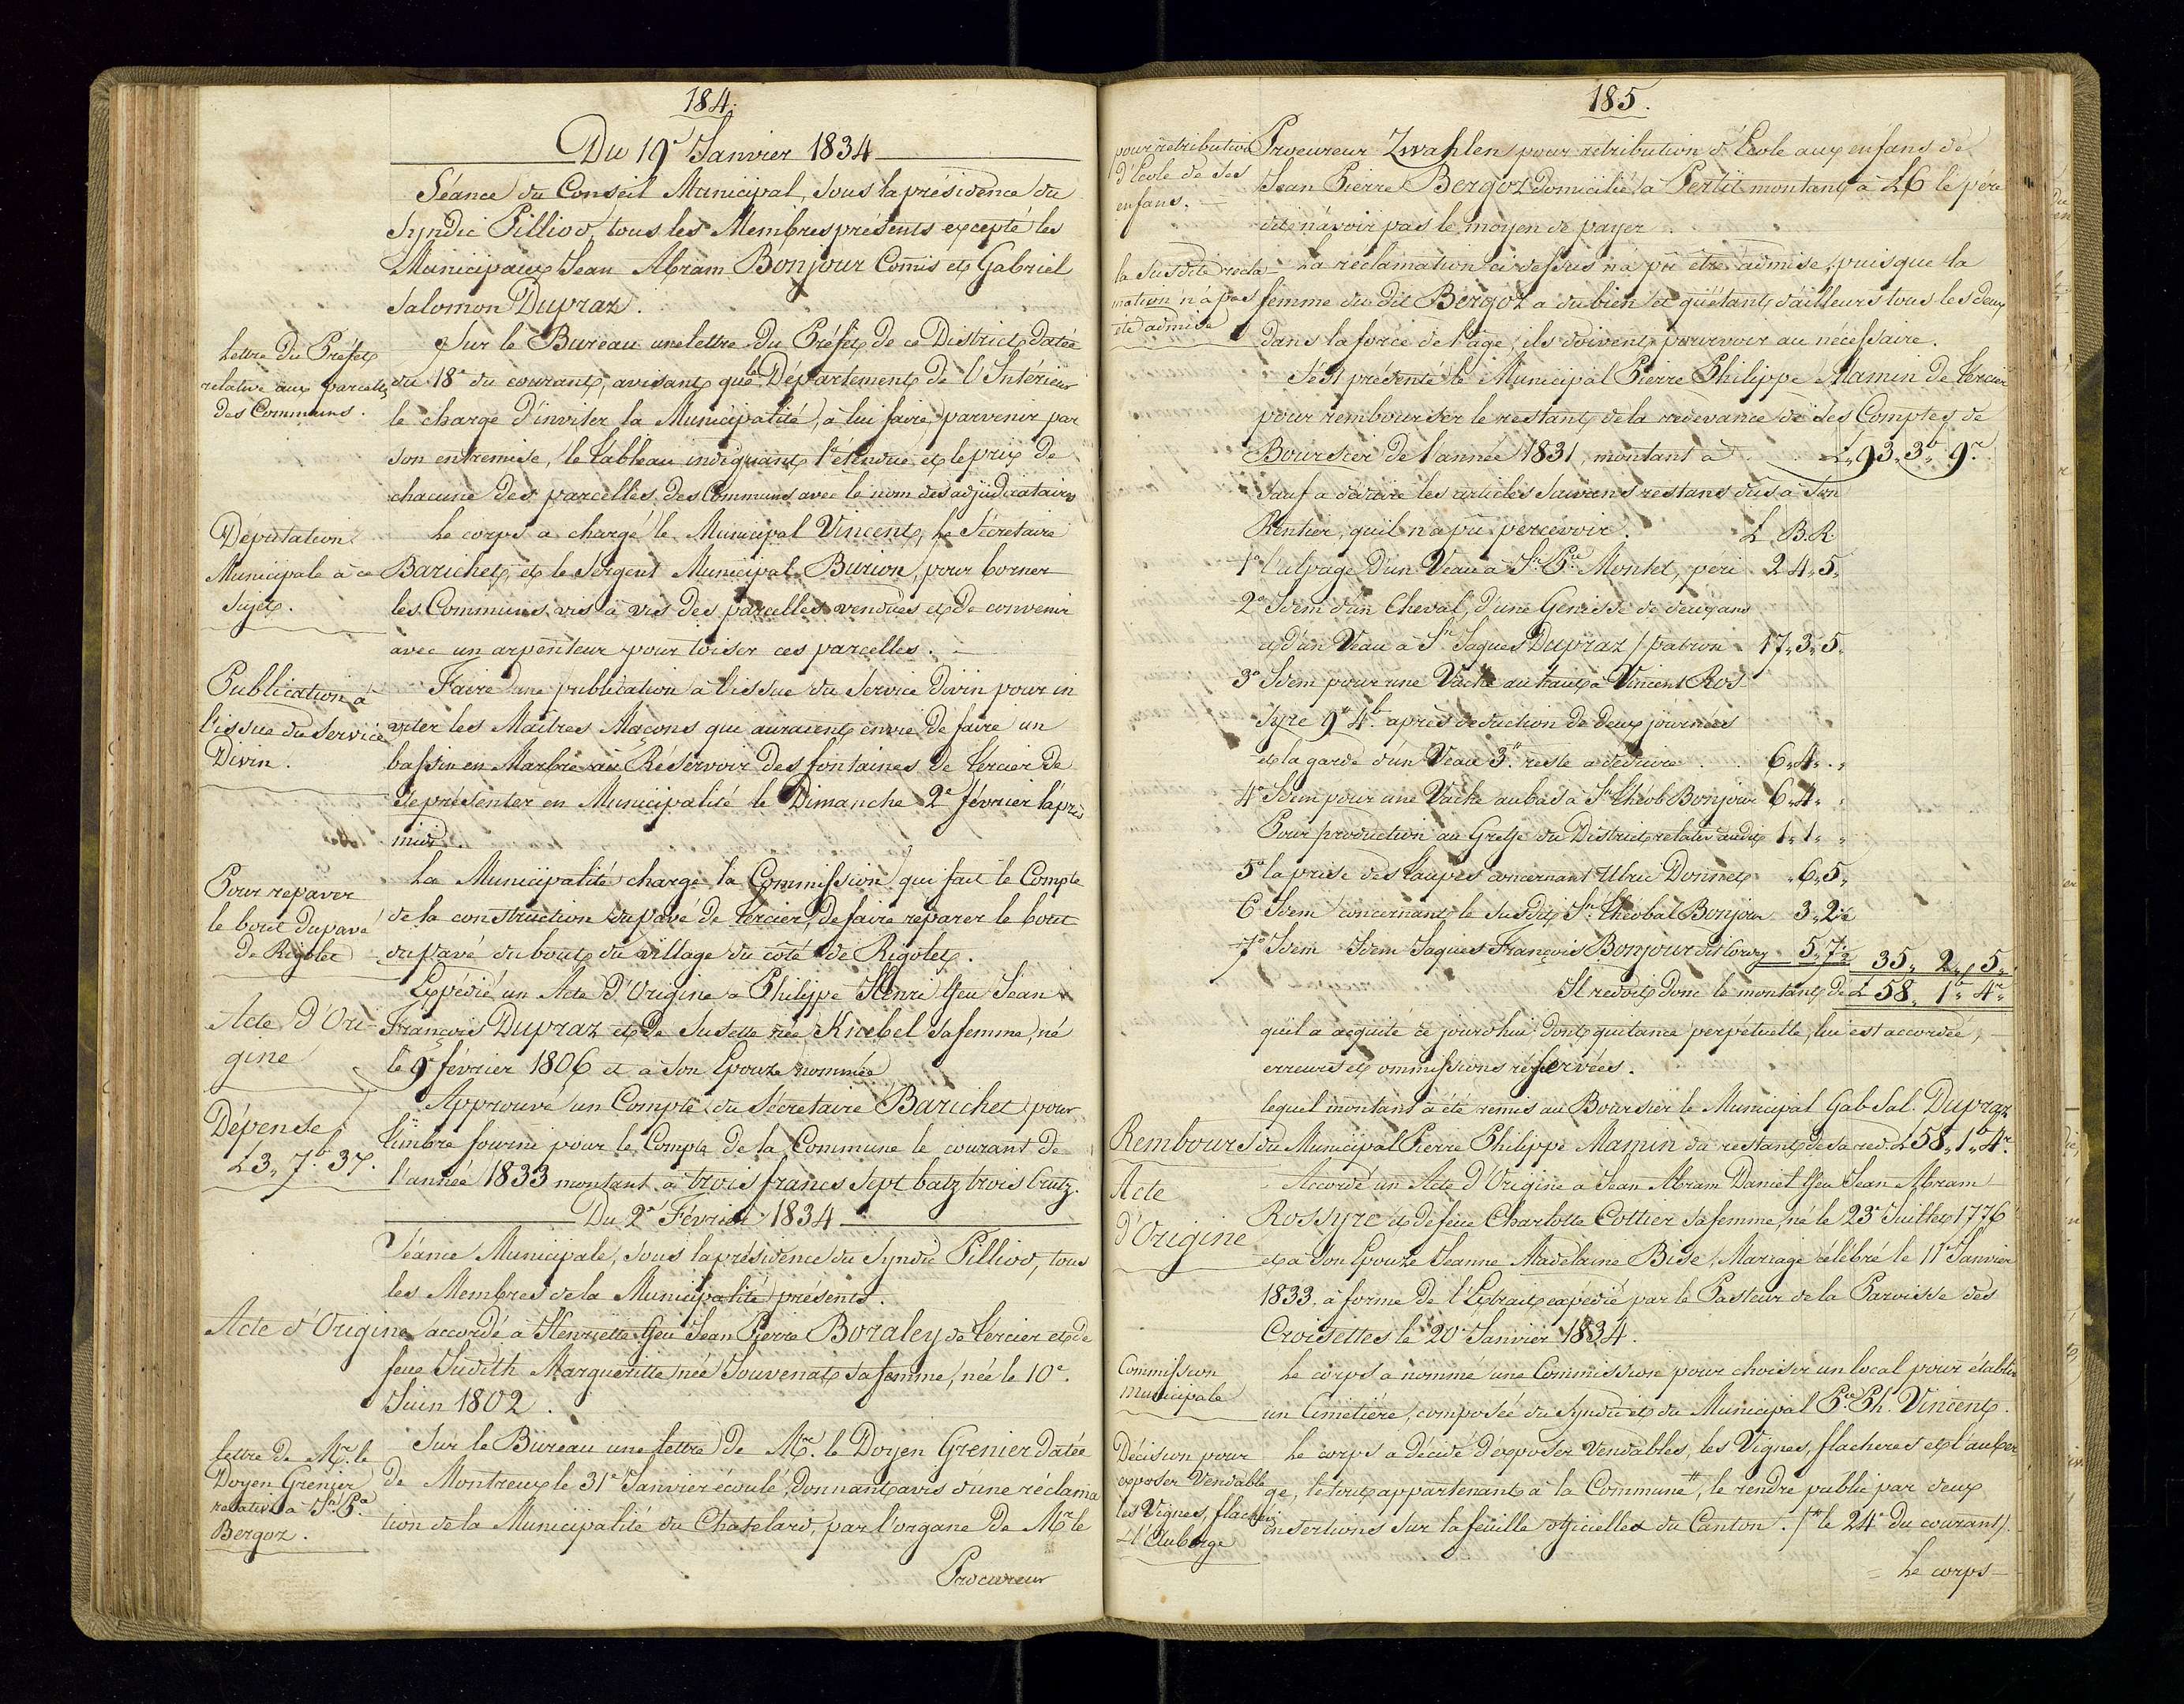 184.
Du 19e Janvier 1834
Séance du Conseil Municipal, sous la présidence du
Syndic Pilliod, tous les Membres présents excepté les
Municipaux Jean Abram Bonjour Comis et Gabriel
Salomon Dupraz.
Lettre du Préfet
relative aux parcelles
des Communs.
Sur le Bureau une lettre du Préfet de ce District datée
du 18e du courant, avisant que le Département de l'Intérieur
le charge d'inviter la Municipalité, à lui faire parvenir par
son entremise, le tableau indiquant l'étendue et le prix de
chacune des parcelles des Communs avec le nom des adjudicataires
Députation
Municipale à ce
Sujet.
Le corps a chargé le Municipal Vincent, le Sécretaire
Barichet, et le Sergent Municipal Burion, pour borner
les Communs vis à vis des parcelles vendues et de convenir
avec un arpenteur pour toiser ces parcelles.
Publication à
l'issue du Service
Divin.
Faire une publication à l'issue du Service Divin pour in
viter les Maitres Maçons qui auraient envie de faire un
bassin en Marbre au Réservoir des fontaines de Vercier de
se présenter en Municipalité le Dimanche 2e février l'après
midi.
Pour repaver
le bout du pavé
de Rigolet
La Municipalité charge la Commission qui fait le Compte
de la construction du pavé de Vercier, de faire réparer le bout
du pavé du bout du village du coté de Rigolet.
Acte d'Ori-
gine
Expédié un Acte d'Origine à Philippe Henri ffeu Jean
François Dupraz et de Susette née Kiebel sa femme, né
le 9e février 1806 et à son Epouze nommée
Dépense
L 3, 7b 3r.
Approuvé un Compte du Sécretaire Barichet pour
timbre fourni pour le Compte de la Commune le courant de
l'année 1833 montant à trois francs sept batz trois Crutz.
Du 2e Février 1834
Séance Municipale, sous la présidence du Syndic Pilliod, tous
les Membres de la Municipalité présents.
Acte d'Origine accordé à Henriette ffeu Jean Pierre Boraley de Vercier et de
feue Judith Margueritte née Jouvenat sa femme, née le 10e.
Juin 1802.
lettre de Mr. le
Doyen Grenier
relative à Jn. Pre
Bergoz.
Sur le Bureau une lettre de Mr. le Doyen Grenier datée
de Montreux le 31e Janvier écoulé, donnant avis d'une réclama
tion de la Municipalité du Chatelard, par l'organe de Mr le
Procureur
185.
pour rétribution
d'Ecole de ses
enfans.
Procureur Zwahlen pour rétribution d'Ecole aux enfans de
Jean Pierre Bergoz domicilié à Pertit montant à L 6 le père
dit n'avoir pas le moyen de payer
la susdite récla-
mation n'a pas
été admise
La réclamation ci dessus n'a pu être admise, puisque la
femme du dit Bergoz a du bien et qu'étant d'ailleurs tous les deux
dans la force de l'age, ils doivent pourvoir au nécessaire.
S'est présenté le Municipal Pierre Philippe Mamin de Vercier
pour rembourser le restant de la redevance de ses Comptes de
Boursier de l'année 1831, montant à L 93, 3b 9r.
Sauf à déduire les articles suivans restans dus à son
Rentier, qu'il n'a pu percevoir. L. B. R.
1o l'alpage d'un Veau à Jn. Pre. Montet, péri 2 4, 5,
2o Idem d'un Cheval, d'une Genisse de deux ans
et d'un Veau à Jn Jaques Dupraz / patron 17, 3, 5,
3o Idem pour une Vache au haut à Vincent Ros
syre 9fr 4b. après déduction de deux journées
et la garde d'un Veau 3fr. reste à déduire 6, 4, "
4o Idem pour une Vache au bas à Jn Théob Bonjour 6, 4, "
Pour production au Greffe du District relatif audit 1, 1, "
5o la prise des taupes concernant Ulric Donnet " 6, 5,
6 Idem concernant le susdit Jn. Théobal Bonjour 3, 2 1/2
7o Idem Idem Jaques François Bonjour dit Corsey 5, 7 1/2 35, 2, 5,
Il redoit donc le montant de L 58, 1b, 4r
qu'il a acquité ce jourd'hui, dont quitance perpétuelle, lui est accordée,
erreurs et ommissions réservées.
lequel montant a été remis au Boursier le Municipal Gab Sal. Dupraz
Rembours du Municipal Pierre Philippe Mamin du restant de sa red. L 58, 1b, 4r.
Acte
d'Origine
Accordé un Acte d'Origine à Jean Abram Daniel ffeu Jean Abram
Rossyre et de feue Charlotte Cottier sa femme, né le 23e Juillet 1776
et à son Epouze Jeanne Madelaine Bise, Mariage célébré le 11e Janvier
1833, à forme de l'Extrait expédié par le Pasteur de la Paroisse des
Croisettes le 20e Janvier 1834.
Commission
Municipale
Le corps a nommé une Commission pour choisir un local pour établir
un Cimetière, composée du Syndic et du Municipal Pre Ph. Vincent.
Décision pour
exposer Vendable
les Vignes, flachères
et l'Auberge
Le corps a décidé d'exposer vendables, les Vignes, flacheres et l'auber
ge, le tout appartenant à la Commune #, le rendre public par deux
insertions sur la feuille officielle du Canton. /# le 24e du courant/.
Le corps